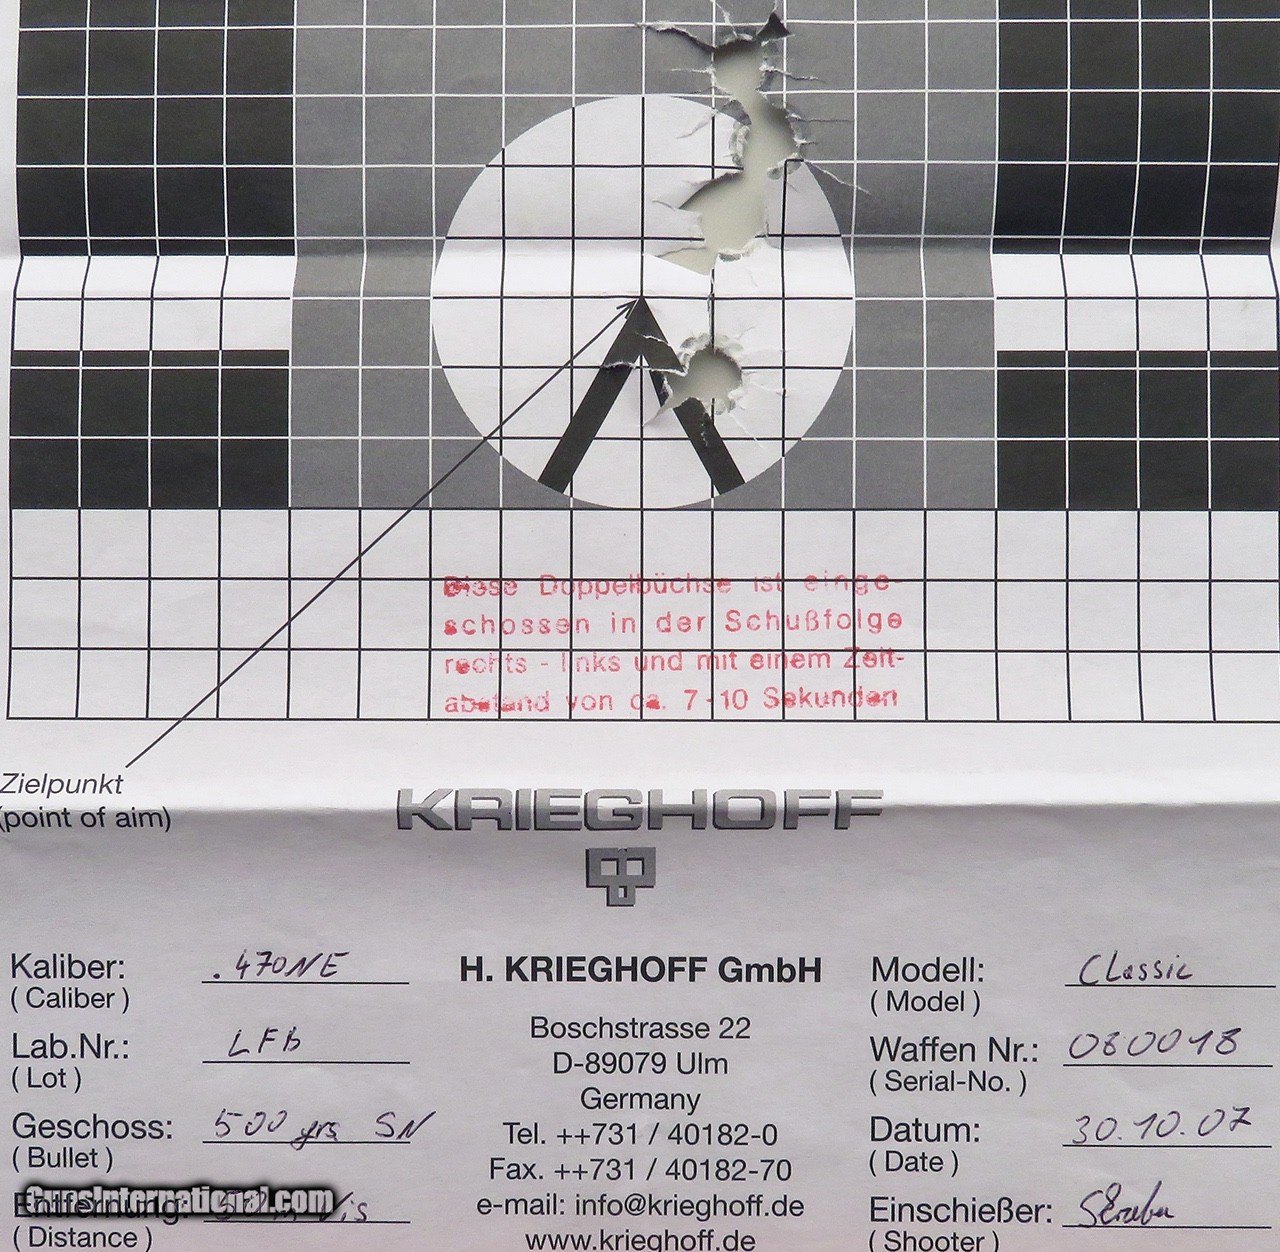 Diese Doppelbüchse ist einge-
schossen in der Schußfolge
rechts - links und mit einem Zeit-
abstand von ca. 7-10 Sekunden
Zielpunkt
(point of aim)
KRIEGHOFF
Kaliber: .470NE
(Caliber)
Lab.Nr.: LFB
(Lot)
Geschoss: 500 grs SN
(Bullet)
Entfernung:
(Distance)
GunsInternational.com
H. KRIEGHOFF GmbH
Boschstrasse 22
D-89079 Ulm
Germany
Tel. ++731 / 40182-0
Fax. ++731 / 40182-70
e-mail: info@krieghoff.de
www.krieghoff.de
Modell: Classic
(Model)
Waffen Nr.: 080018
(Serial-No.)
Datum: 30.10.07
(Date)
Einschießer:
(Shooter)